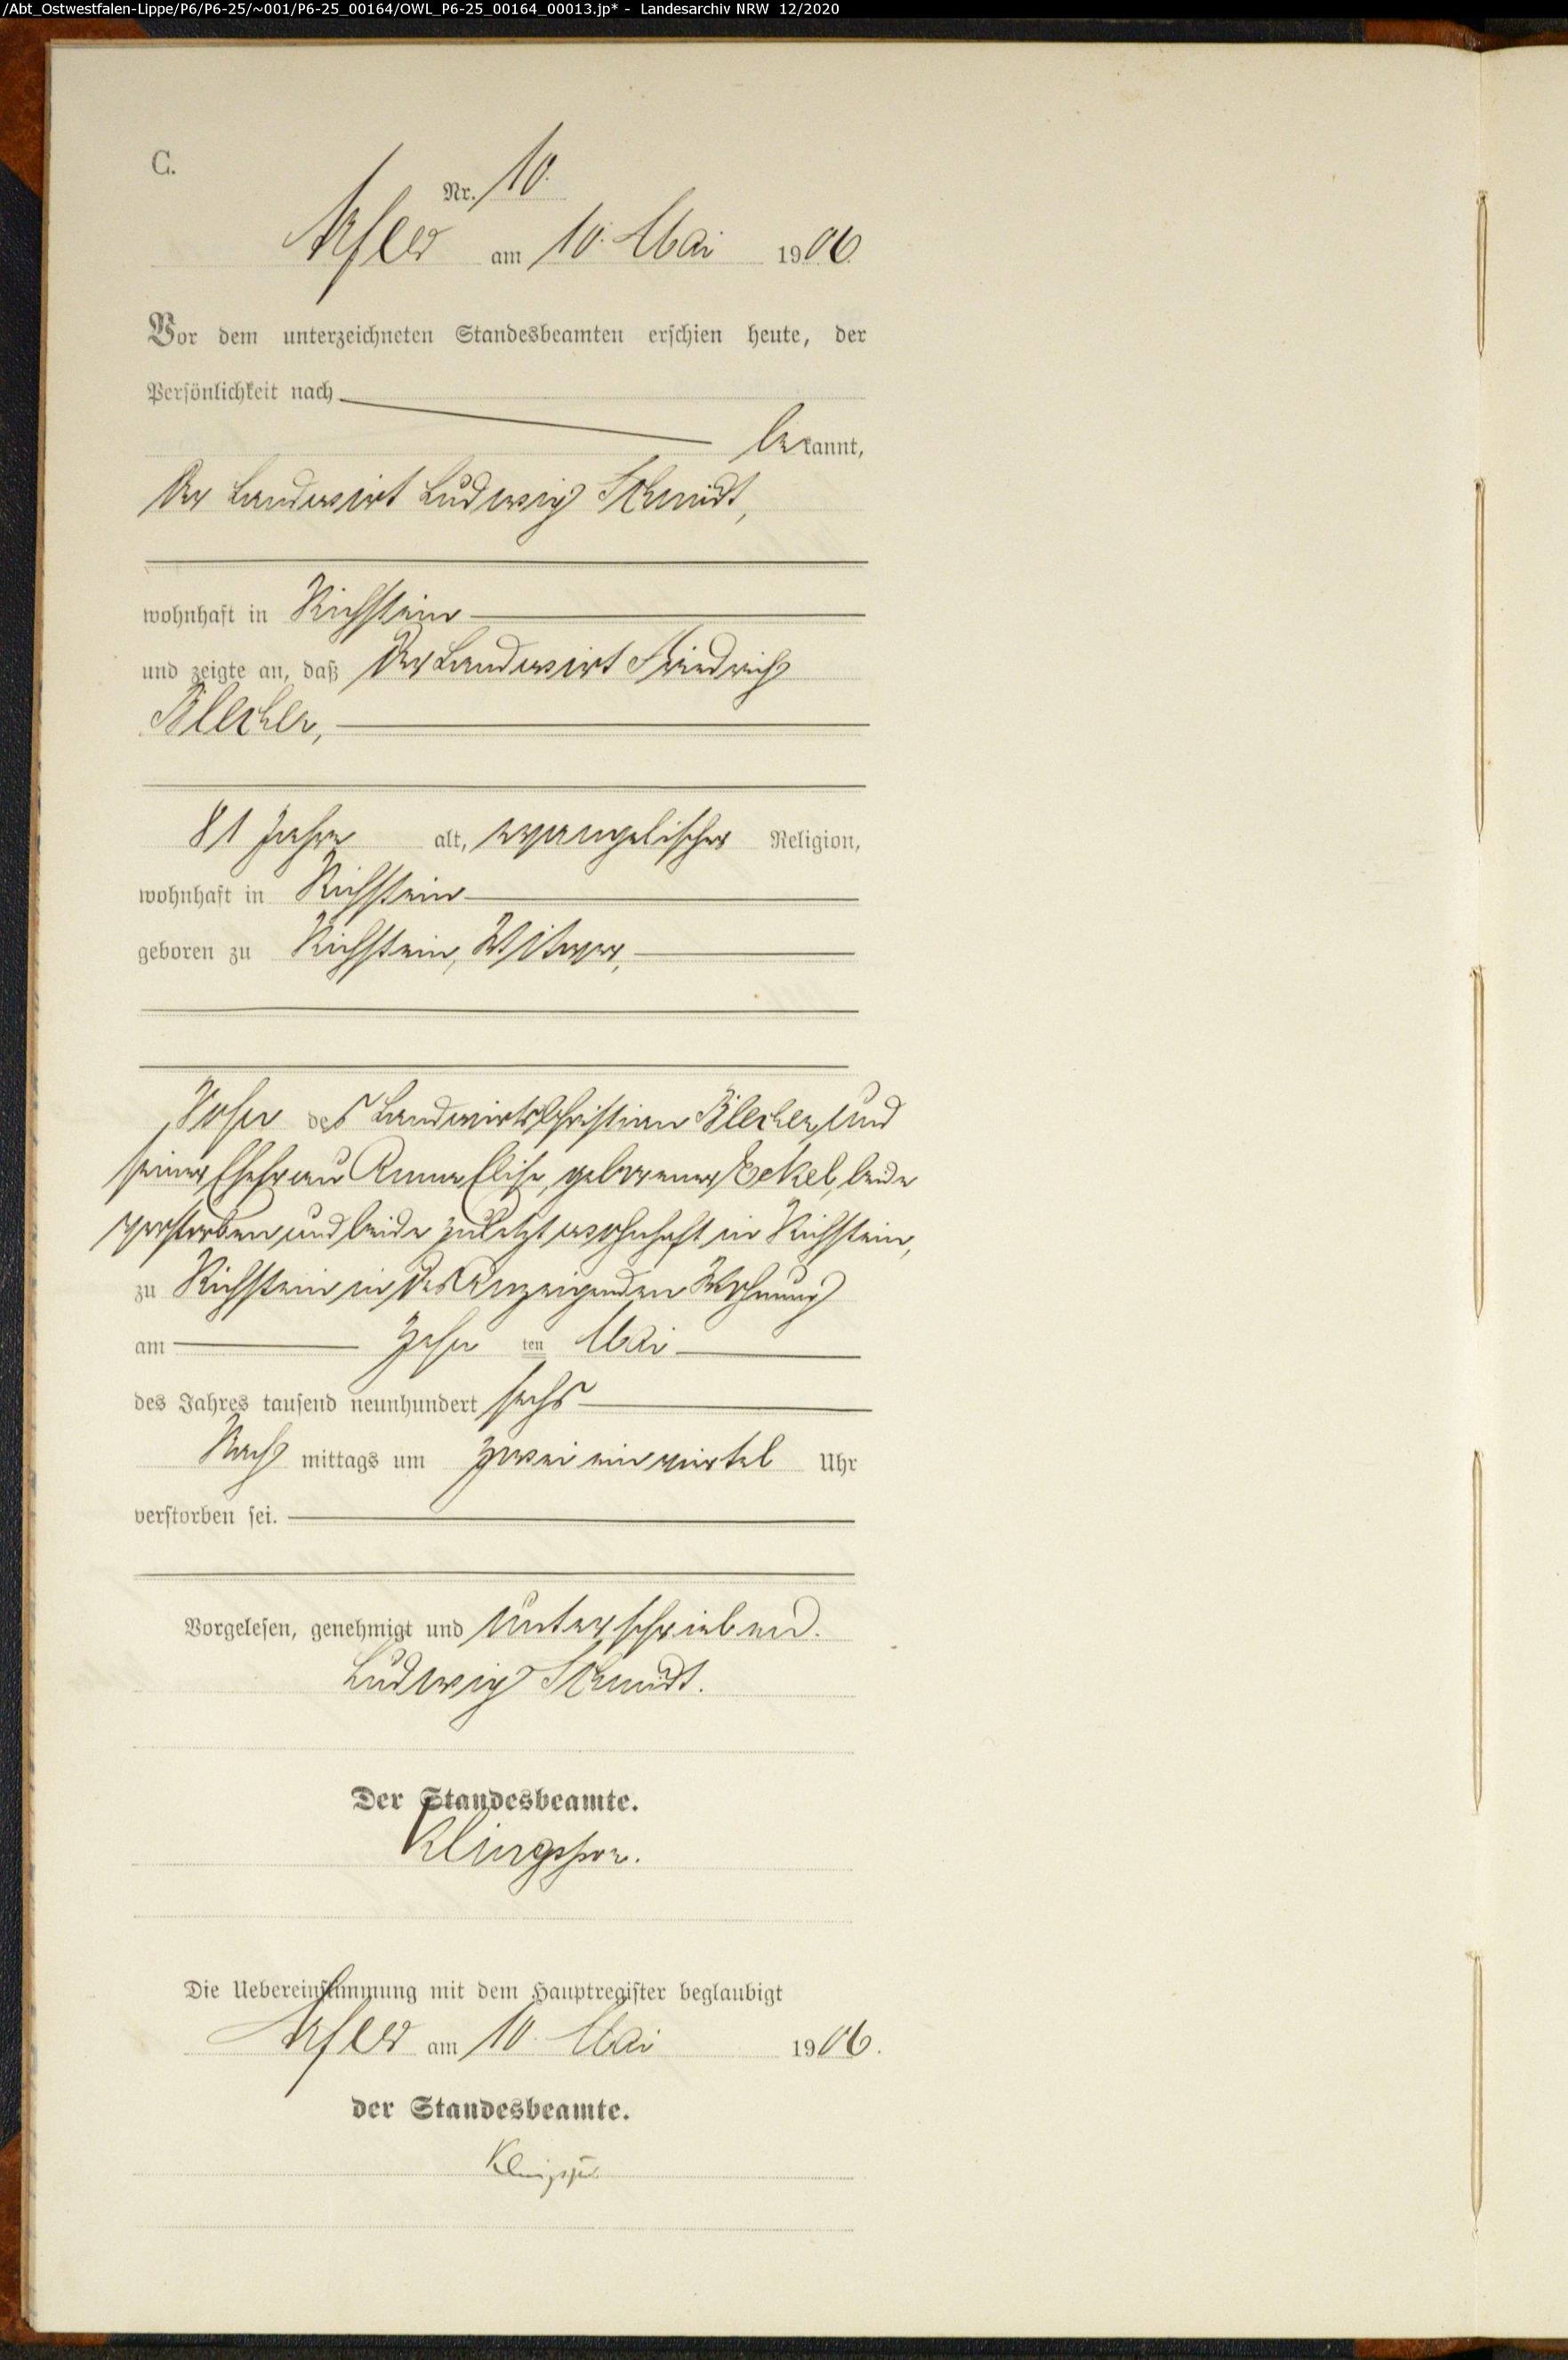 /Abt_Ostwestfalen-Lippe/P6/P6-25/~001/P6-25_00164/OWL_P6-25_00164_00013.jp* - Landesarchiv NRW 12/2020
C.
Nr. 10.
Arfeld am 10. Mai 1906.
Vor dem unterzeichneten Standesbeamten erschien heute, der
Persönlichkeit nach
bekannt,
der Landwirt Ludwig Schmidt,
wohnhaft in Richstein
und zeigte an, daß der Landwirt Friedrich
Blecher,
81 Jahre alt, evangelischer Religion,
wohnhaft in Richstein
geboren zu Richstein, Witwer,
Sohn des Landwirts Christian Blecher und
seiner Ehefrau Anna Elise, geborener Eckel, beide
verstorben und beide zuletzt wohnhaft in Richstein,
zu Richstein in des Anzeigenden Wohnung
am zehn ten Mai
des Jahres tausend neunhundert sechs
Nach mittags um zwei ein viertel Uhr
verstorben sei.
Vorgelesen, genehmigt und unterschrieben.
Ludwig Schmidt.
Der Standesbeamte.
Klingspor.
Die Uebereinstimmung mit dem Hauptregister beglaubigt
Arfeld am 10. Mai 1906.
der Standesbeamte.
Klingspor